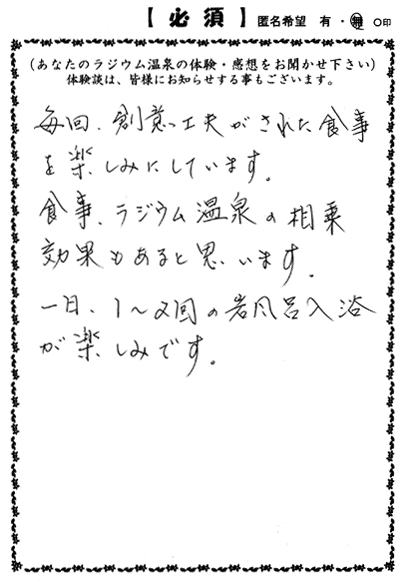 【必須】 匿名希望 有・無 ○印
(あなたのラジウム温泉の体験・感想をお聞かせ下さい)
体験談は、皆様にお知らせする事もございます。
毎回、創意工夫がされた食事
を楽しみにしています。
食事、ラジウム温泉の相乗
効果もあると思います。
一日、1〜2回の岩風呂入浴
が楽しみです。